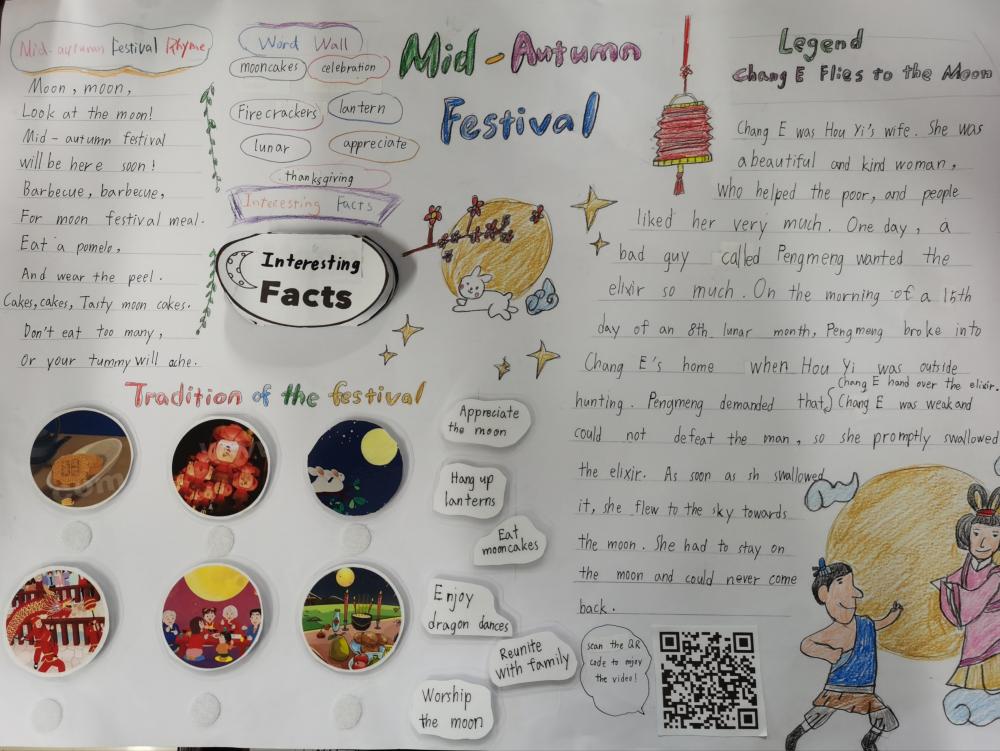 Mid-autumn Festival Rhyme
Moon, moon,
Look at the moon!
Mid-autumn festival
will be here soon!
Barbecue, barbecue,
For moon festival meal.
Eat a pomelo,
And wear the peel.
Cakes, cakes, Tasty moon cakes.
Don't eat too many,
Or your tummy will ache.
Word Wall
mooncakes
celebration
Firecrackers
lantern
lunar
appreciate
thanksgiving
Interesting Facts
Interesting
Facts
Mid-Autumn
Festival
Legend
Chang E Flies to the Moon
Chang E was Hou Yi's wife. She was
a beautiful and kind woman,
who helped the poor, and people
liked her very much. One day, a
bad guy called Pengmeng wanted the
elixir so much. On the morning of a 15th
day of an 8th lunar month, Pengmeng broke into
Chang E's home when Hou Yi was outside
Chang E hand over the elixir.
hunting. Pengmeng demanded that Chang E was weak and
could not defeat the man, so she promptly swallowed
the elixir. As soon as sh swallowed
it, she flew to the sky towards
the moon. She had to stay on
the moon and could never come
back.
Tradition of the festival
Appreciate
the moon
Hang up
lanterns
Eat
mooncakes
Enjoy
dragon dances
Reunite
with family
Worship
the moon
scan the QR
code to enjoy
the video!